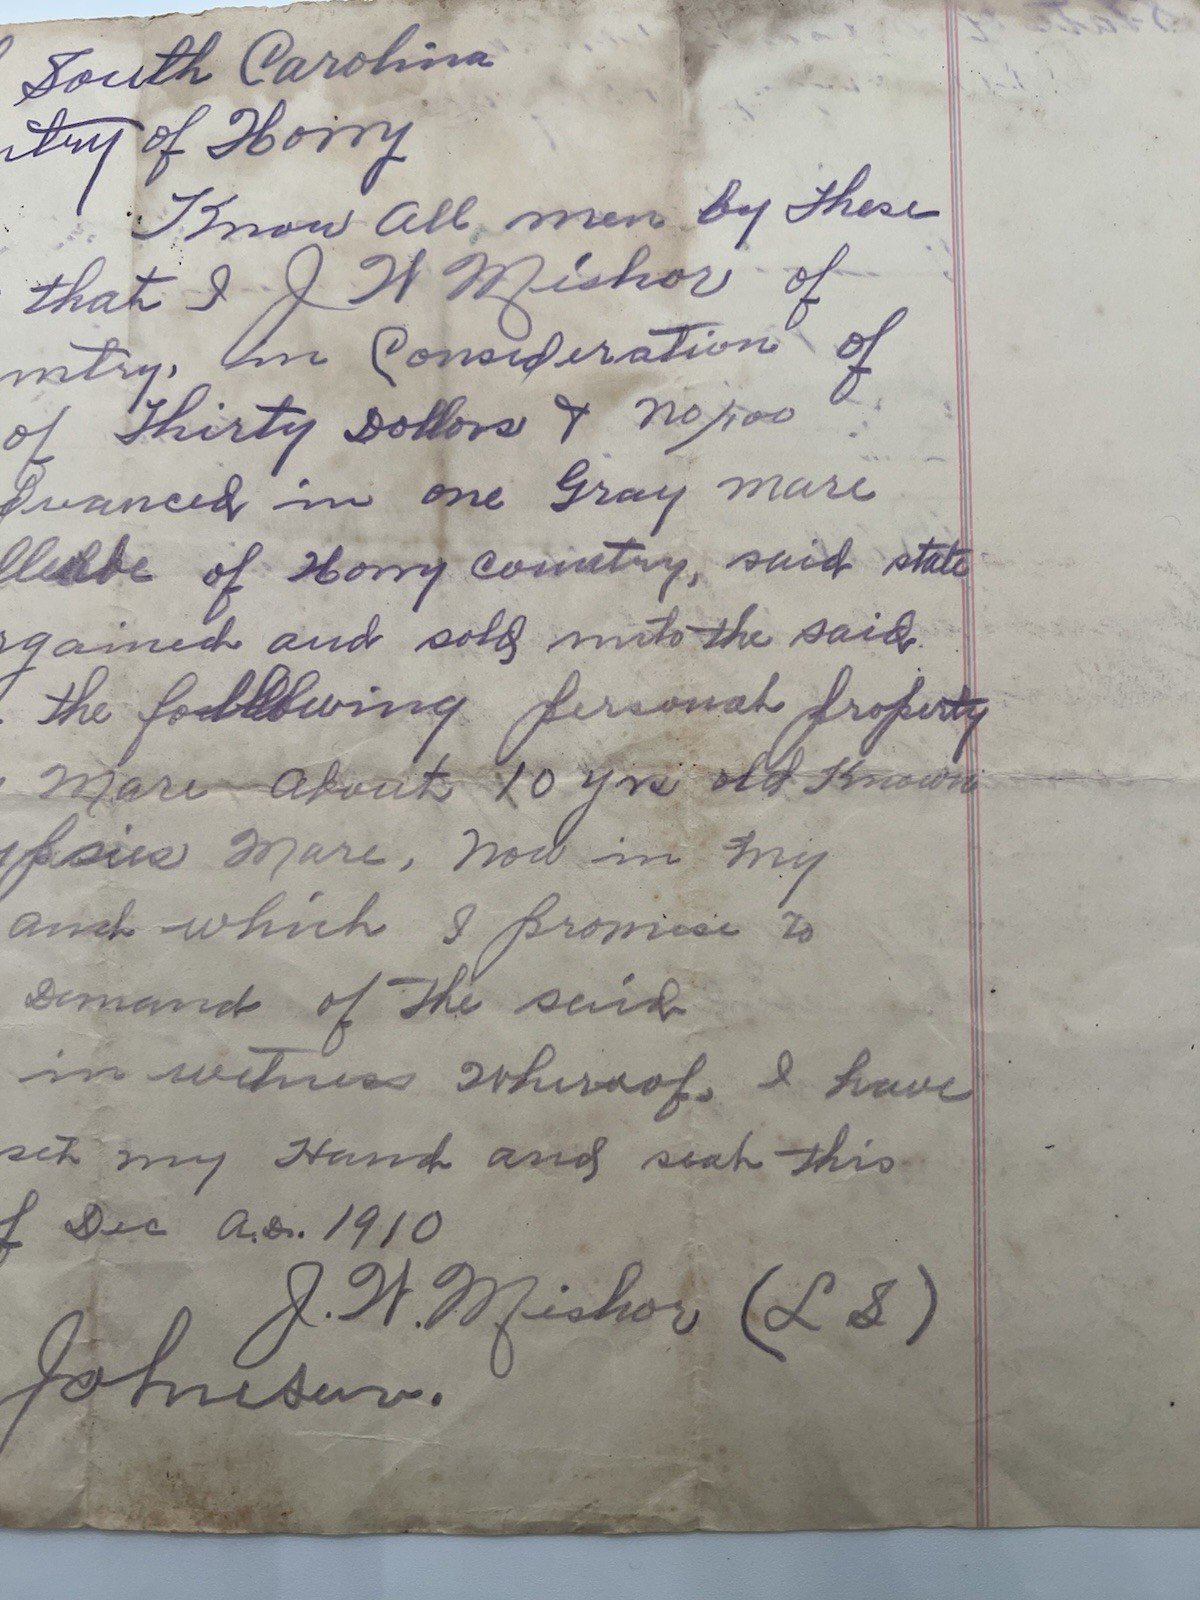 South Carolina
ntry of Horry
Know All men by These
that I J W Mishor of
untry, in Consideration of
of Thirty Dollars & no/100
dvanced in one Gray mare
of Horry Country, said state
rgained and sold unto the said
the following personal property
Mare About 10 yrs old Known
Mare, Now in my
and which I promise to
Demand of The said
in witness Wherof. I have
set my Hand and seal this
f Dec A.D. 1910
J. W. Mishor (L S)
Johnson.